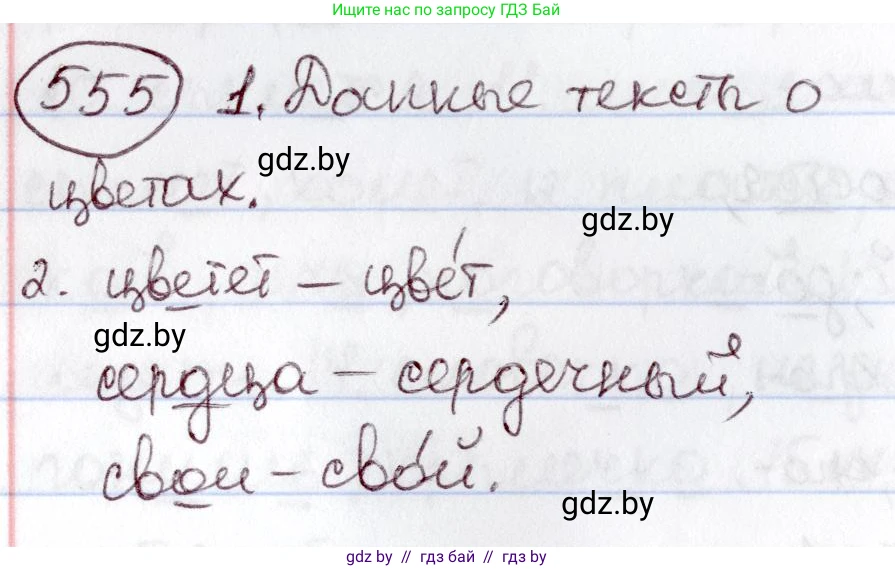 Ищите нас по запросу ГДЗ Бай
555 1. Данные тексты о
gdz.by
цветах.
gdz.by
2. цветет – цве́т,
gdz.by
сердца – сердечный,
свои – сво́й.
gdz.by
gdz.by // гдз бай // гдз by